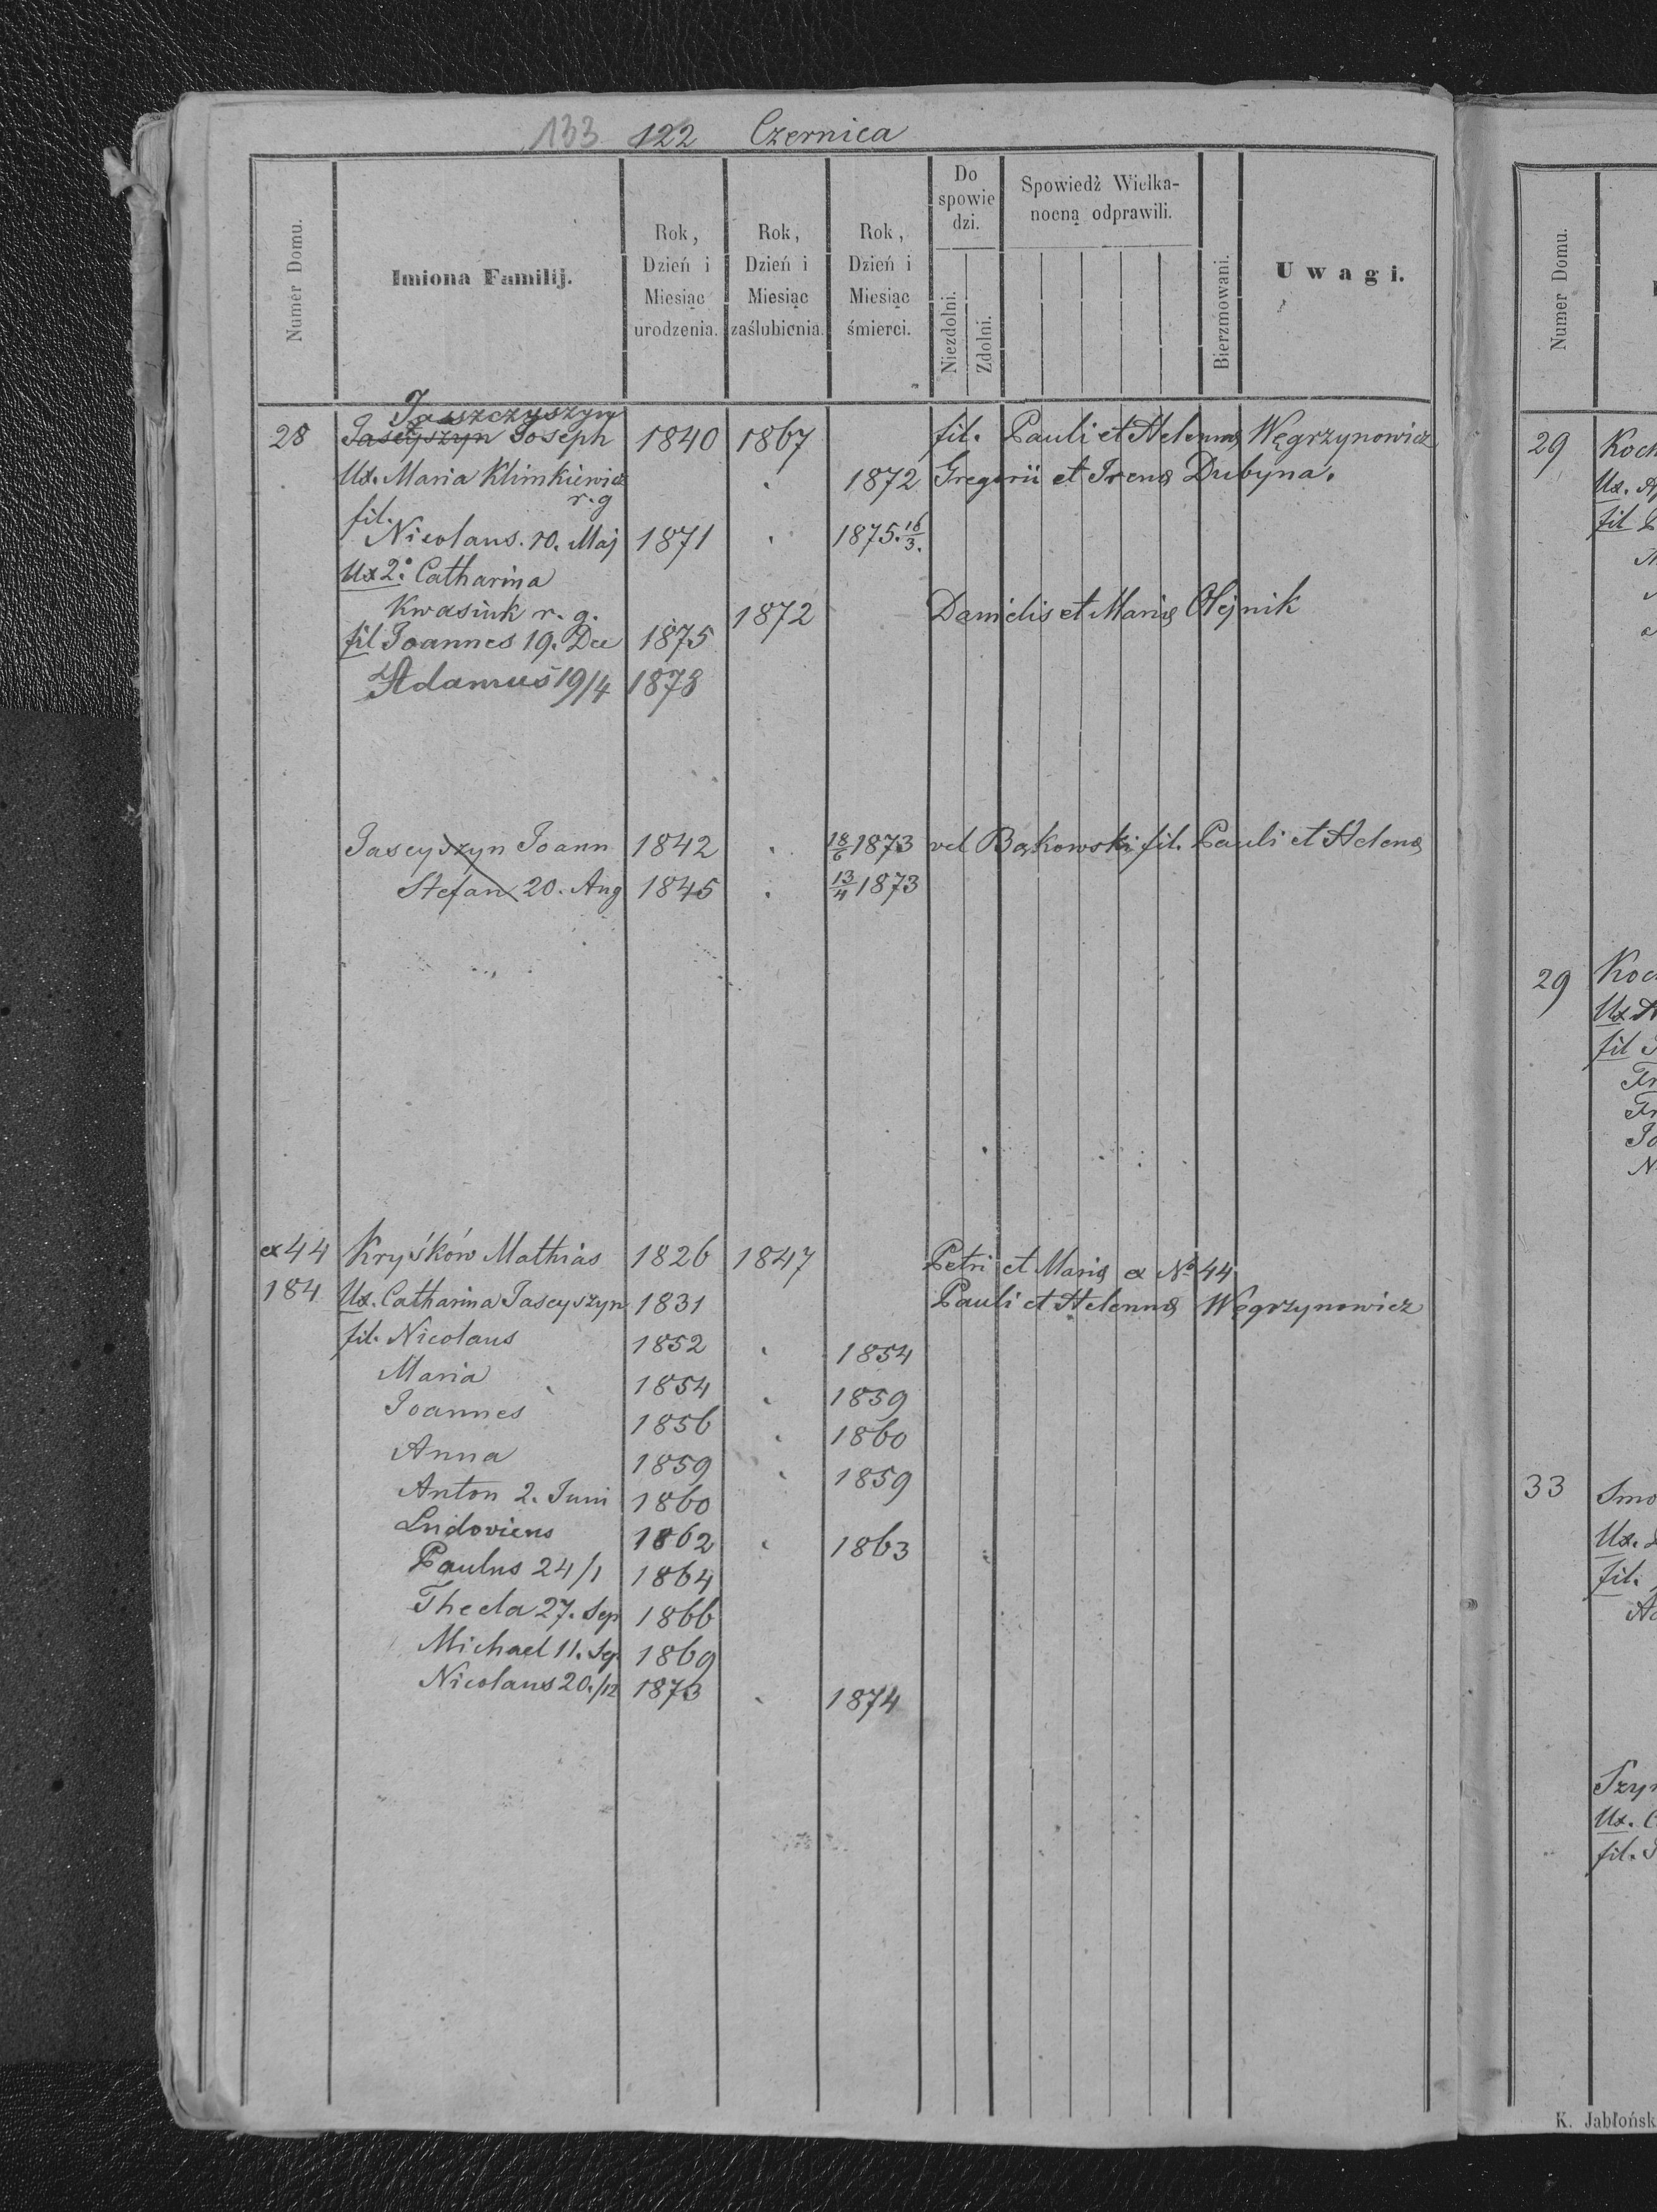 133 122 Czernica
Numer Domu.
Imiona Familij.
Rok, Dzień i Miesiąc urodzenia.
Rok, Dzień i Miesiąc zaślubienia.
Rok, Dzień i Miesiąc śmierci.
Do spowiedzi.
Niezdolni.
Zdolni.
Spowiedź Wielkanocną odprawili.
Bierzmowani.
Uwagi.
Jaszczyszyn
28 Jascyszyn Joseph 1840 1867 fil. Pauli et Helenna Węgrzynowicz
Ux. Maria Klimkiewicz 1872 Gregorii et Irena Dubyna.
r. g
fil.
Nicolaus. 10. Maj 1871 1875. 16/3.
Ux 2° Catharina
Kwasiuk r. g. 1872 Danielis et Maria Olejnik
fil Joannes 19. Dec 1875
Adamus 19/4 1878
Jascyszyn Joann 1842 18/6 1873 vel Bąkowski fil. Pauli et Helena
Stefan 20. Aug 1845 13/4 1873
ex 44 Kryśków Mathias 1826 1847 Petri et Maria ex No 44
184 Ux. Catharina Jascyszyn 1831 Pauli et Helenna Węgrzynowicz
fil. Nicolaus 1852 1854
Maria 1854 1859
Joannes 1856 1860
Anna 1859 1859
Anton 2. Juni 1860
Ludovicus 1862 1863
Paulus 24/1 1864
Thecla 27. Sep 1866
Michael 11. Sep 1869
Nicolaus 20./12 1873 1874
Numer Domu.
29 Koch
Ux.
fil
29 Koc
Ux
fil
Fr
Fr
Jo
N
33 Smo
Ux.
fil.
Szy
Ux. C
fil. J
K. Jabłońsk